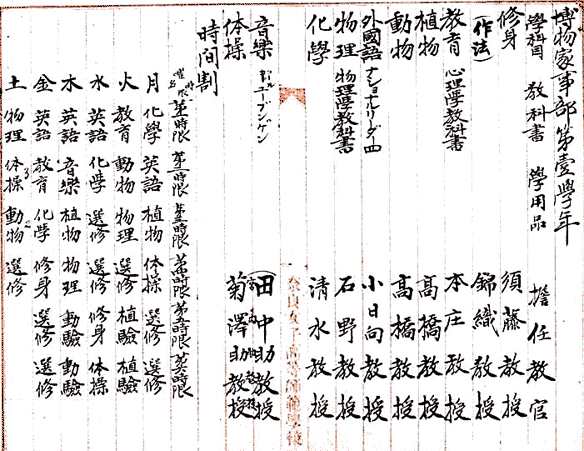 博物家事部第壹學年
學科目 教科書 學用品 擔任教官
修身 須藤教授
(作法) 錦織教授
教育 心理學教科書 本庄教授
植物 高橋教授
動物 高橋教授
外國語 ナショナルリーダー四 小日向教授
物理 物理學教科書 石野教授
化學 清水教授
音樂 コールユーブンゲン 田中助教授
体操 菊澤助教授
時间割
第一時限 第二時限 第三時限 第四時限 第五時限 第六時限
月 化學 英語 植物 体操 選修 選修
火 教育 動物 物理 選修 植驗 植驗
水 英語 化學 選修 選修 修身 体操
木 英語 音樂 植物 物理 動驗 動驗
金 英語 教育 化學 修身 選修 選修
土 物理 体操 動物 選修